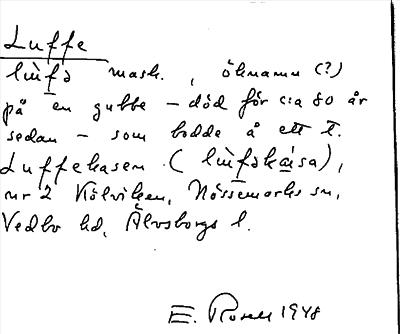 Luffe
lùfə mask., öknamn (?)
på en gubbe – död för c:a 80 år
sedan – som bodde å ett t.
Luffekasen (lùfəka̍sa),
nr 2 Kölviken, Nössemarks sn,
Vedbo hd, Älvsborgs l.
E. Rosell 1948